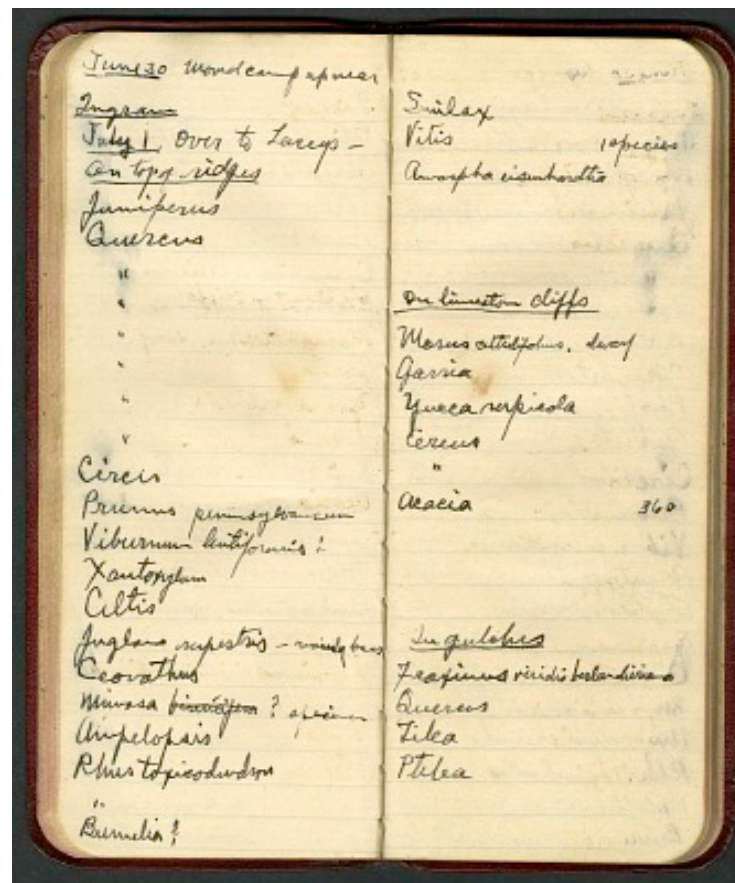 June 30 Wood camp up near
Ingram
July 1, Over to Laceys -
On top of ridges
Juniperus
Quercus
"
"
"
"
"
"
Circis
Prunus pennsylvanicum
Viburnum ?
Xantoxylum
Celtis
Juglans rupestris -
Ceovathus
Mimosa ? specimen
Ampelopsis
Rhus toxicodendron
"
Bumelia ?
Smilax
Vitis 1 species
Amorpha eisenhardtia
On limestone cliffs
Morus, dwarf
Garria
Yucca rupicola
Cereus
"
Acacia 360
In gulches
Fraxinus viridis berlandierana
Quercus
Tilea
Ptelea